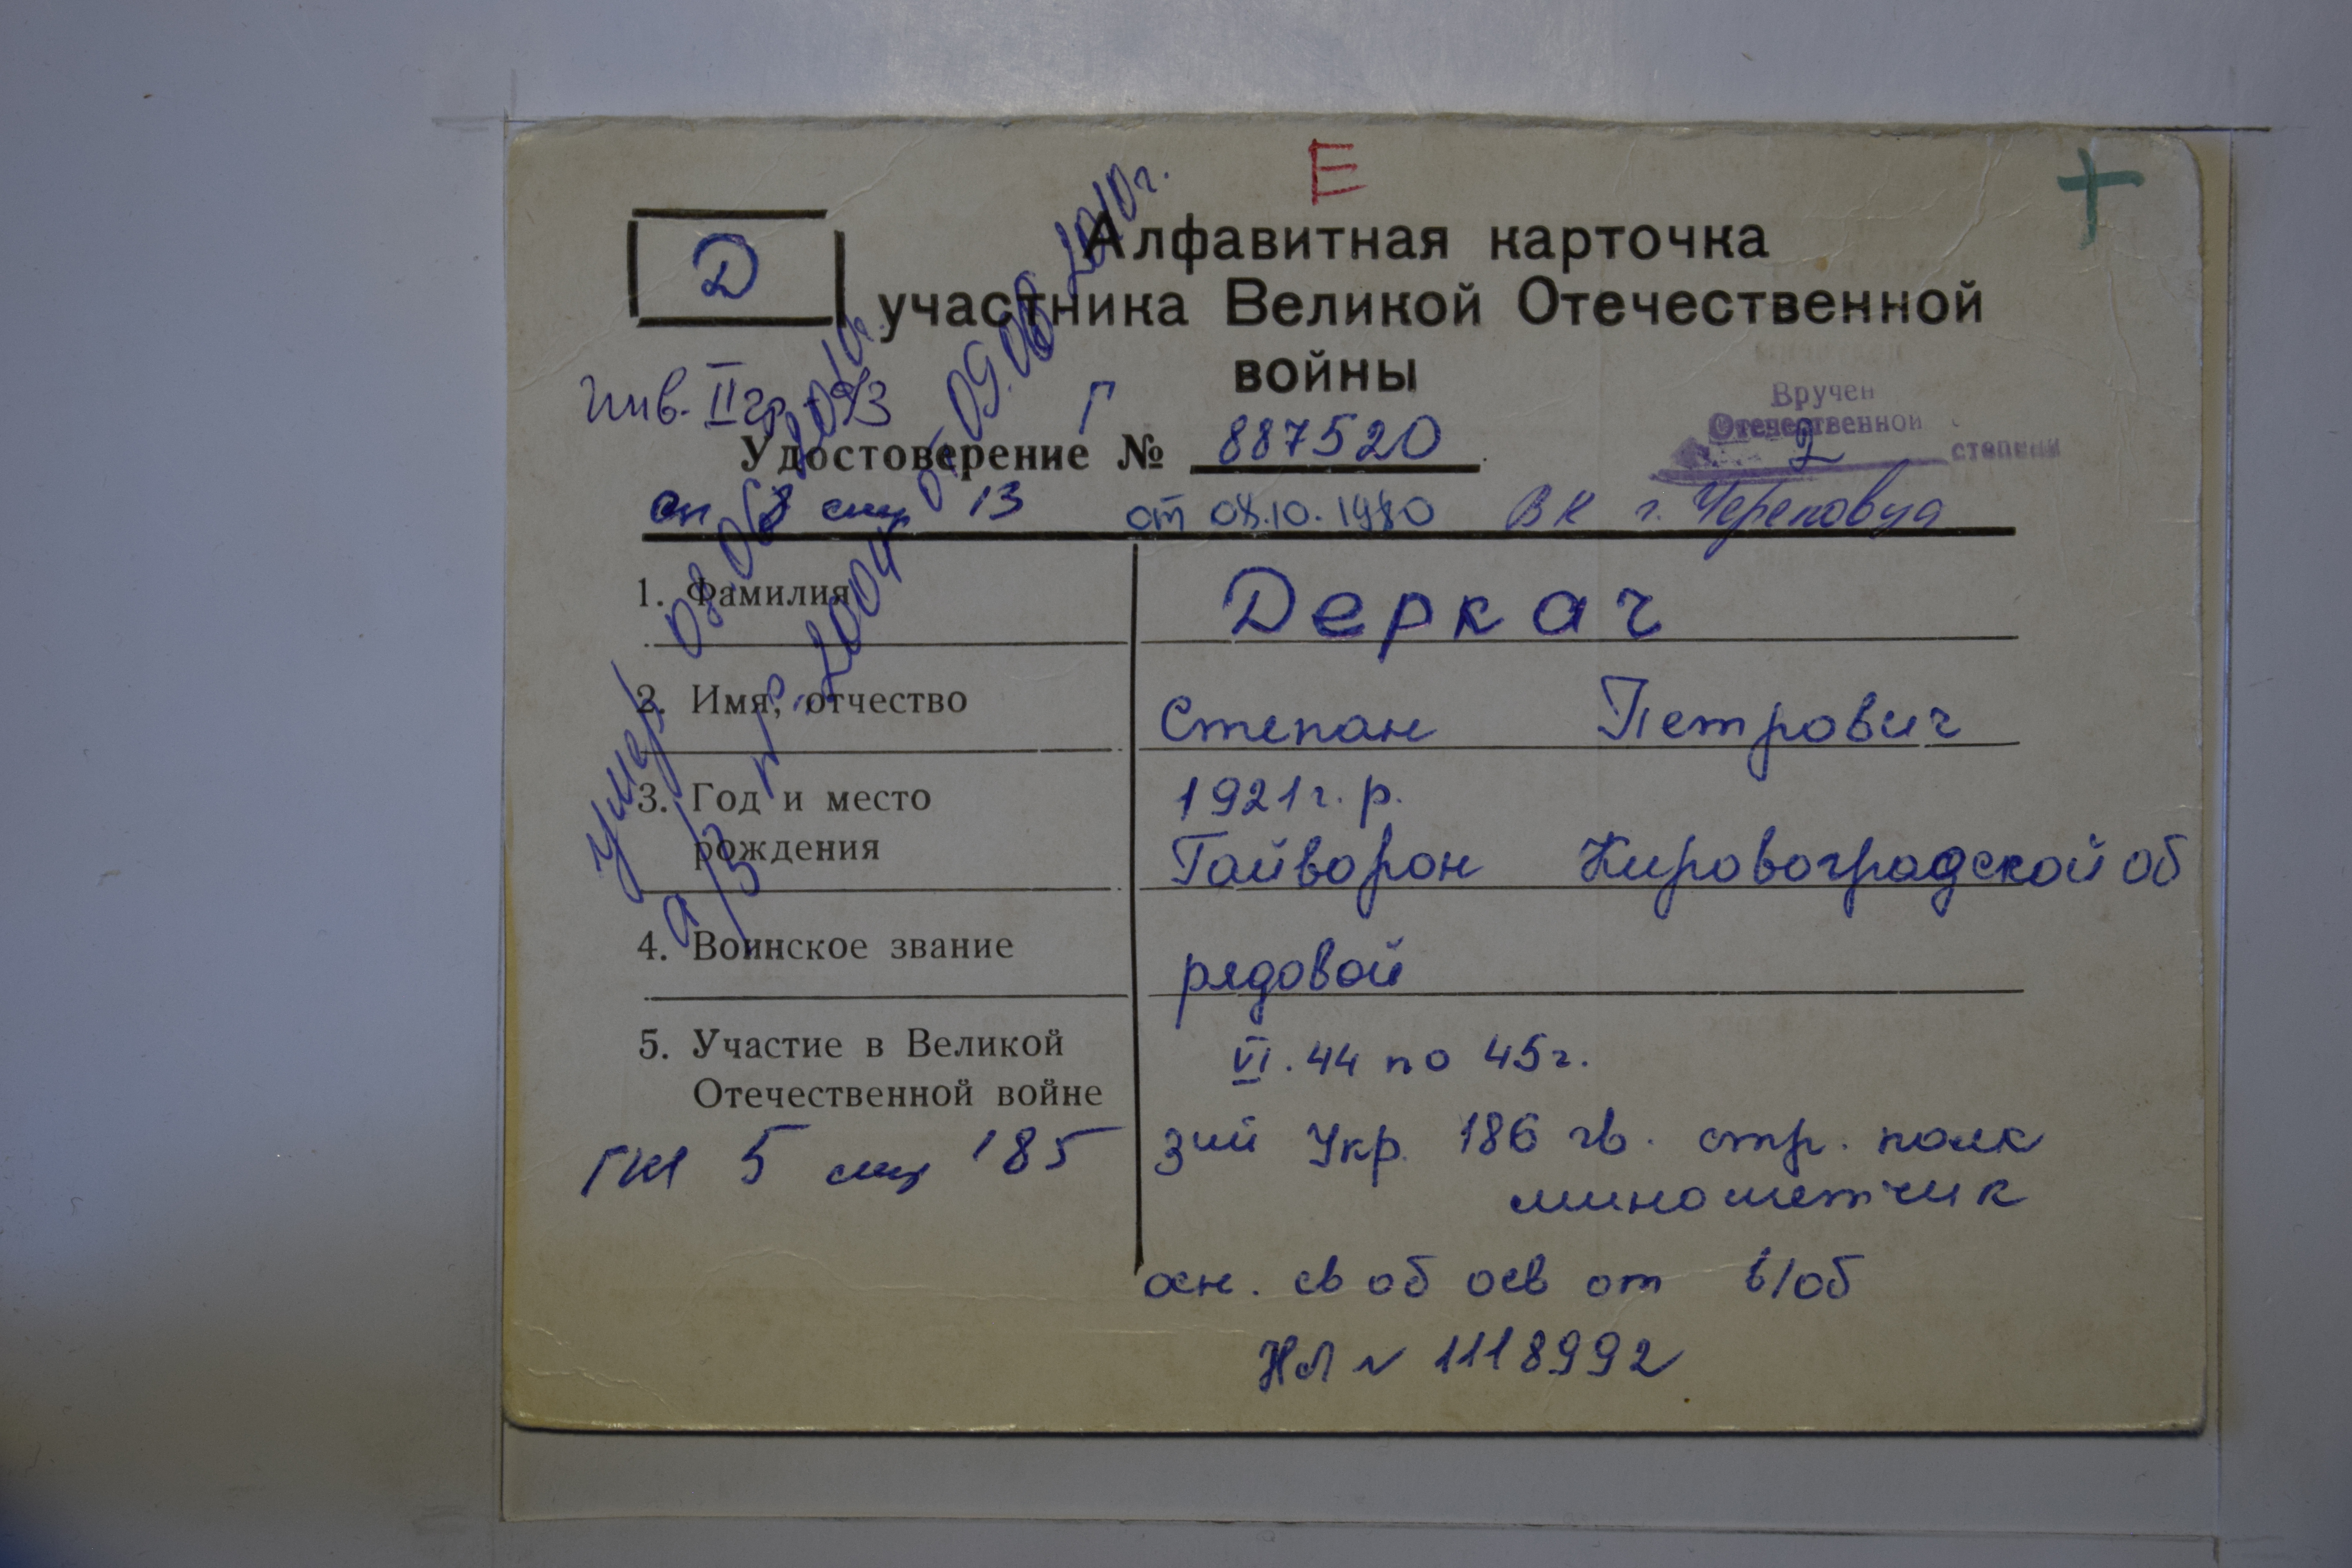 Е
Д
Алфавитная карточка
участника Великой Отечественной
войны
Инв. II гр.
Г
Вручен
Отечественной
2
степени
Удостоверение № 887520
оп 8 спец 13 от 08.10.1980 ВК г. Череповца
1. Фамилия Деркач
2. Имя, отчество Степан Петрович
3. Год и место 1921г. р.
рождения Гайворон Кировоградской об
4. Воинское звание рядовой
5. Участие в Великой VI.44 по 45г.
Отечественной войне
3ий Укр. 186 гв. стр. полк
5 185
минометчик
осн. св об осв от в/об
НЛ № 1118992
умер 03.06.2010г.
а/з № 2004 от 09.06.2010г.